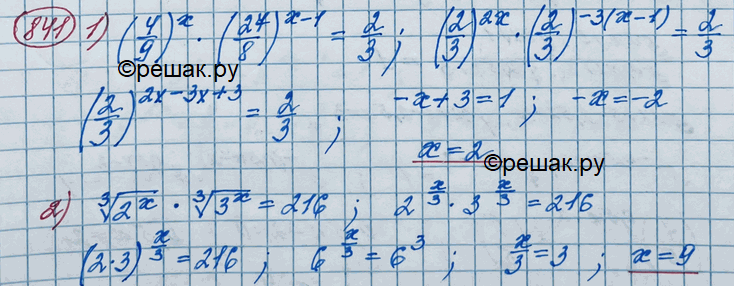 841 1) (4/9)^x · (27/8)^(x-1) = 2/3 ; (2/3)^(2x) · (2/3)^(-3(x-1)) = 2/3
©решак.ру
(2/3)^(2x-3x+3) = 2/3 ; -x+3=1 ; -x=-2
x=2 ©решак.ру
2) ∛(2^x) · ∛(3^x) = 216 ; 2^(x/3) · 3^(x/3) = 216
(2·3)^(x/3) = 216 ; 6^(x/3) = 6^3 ; x/3 = 3 ; x=9